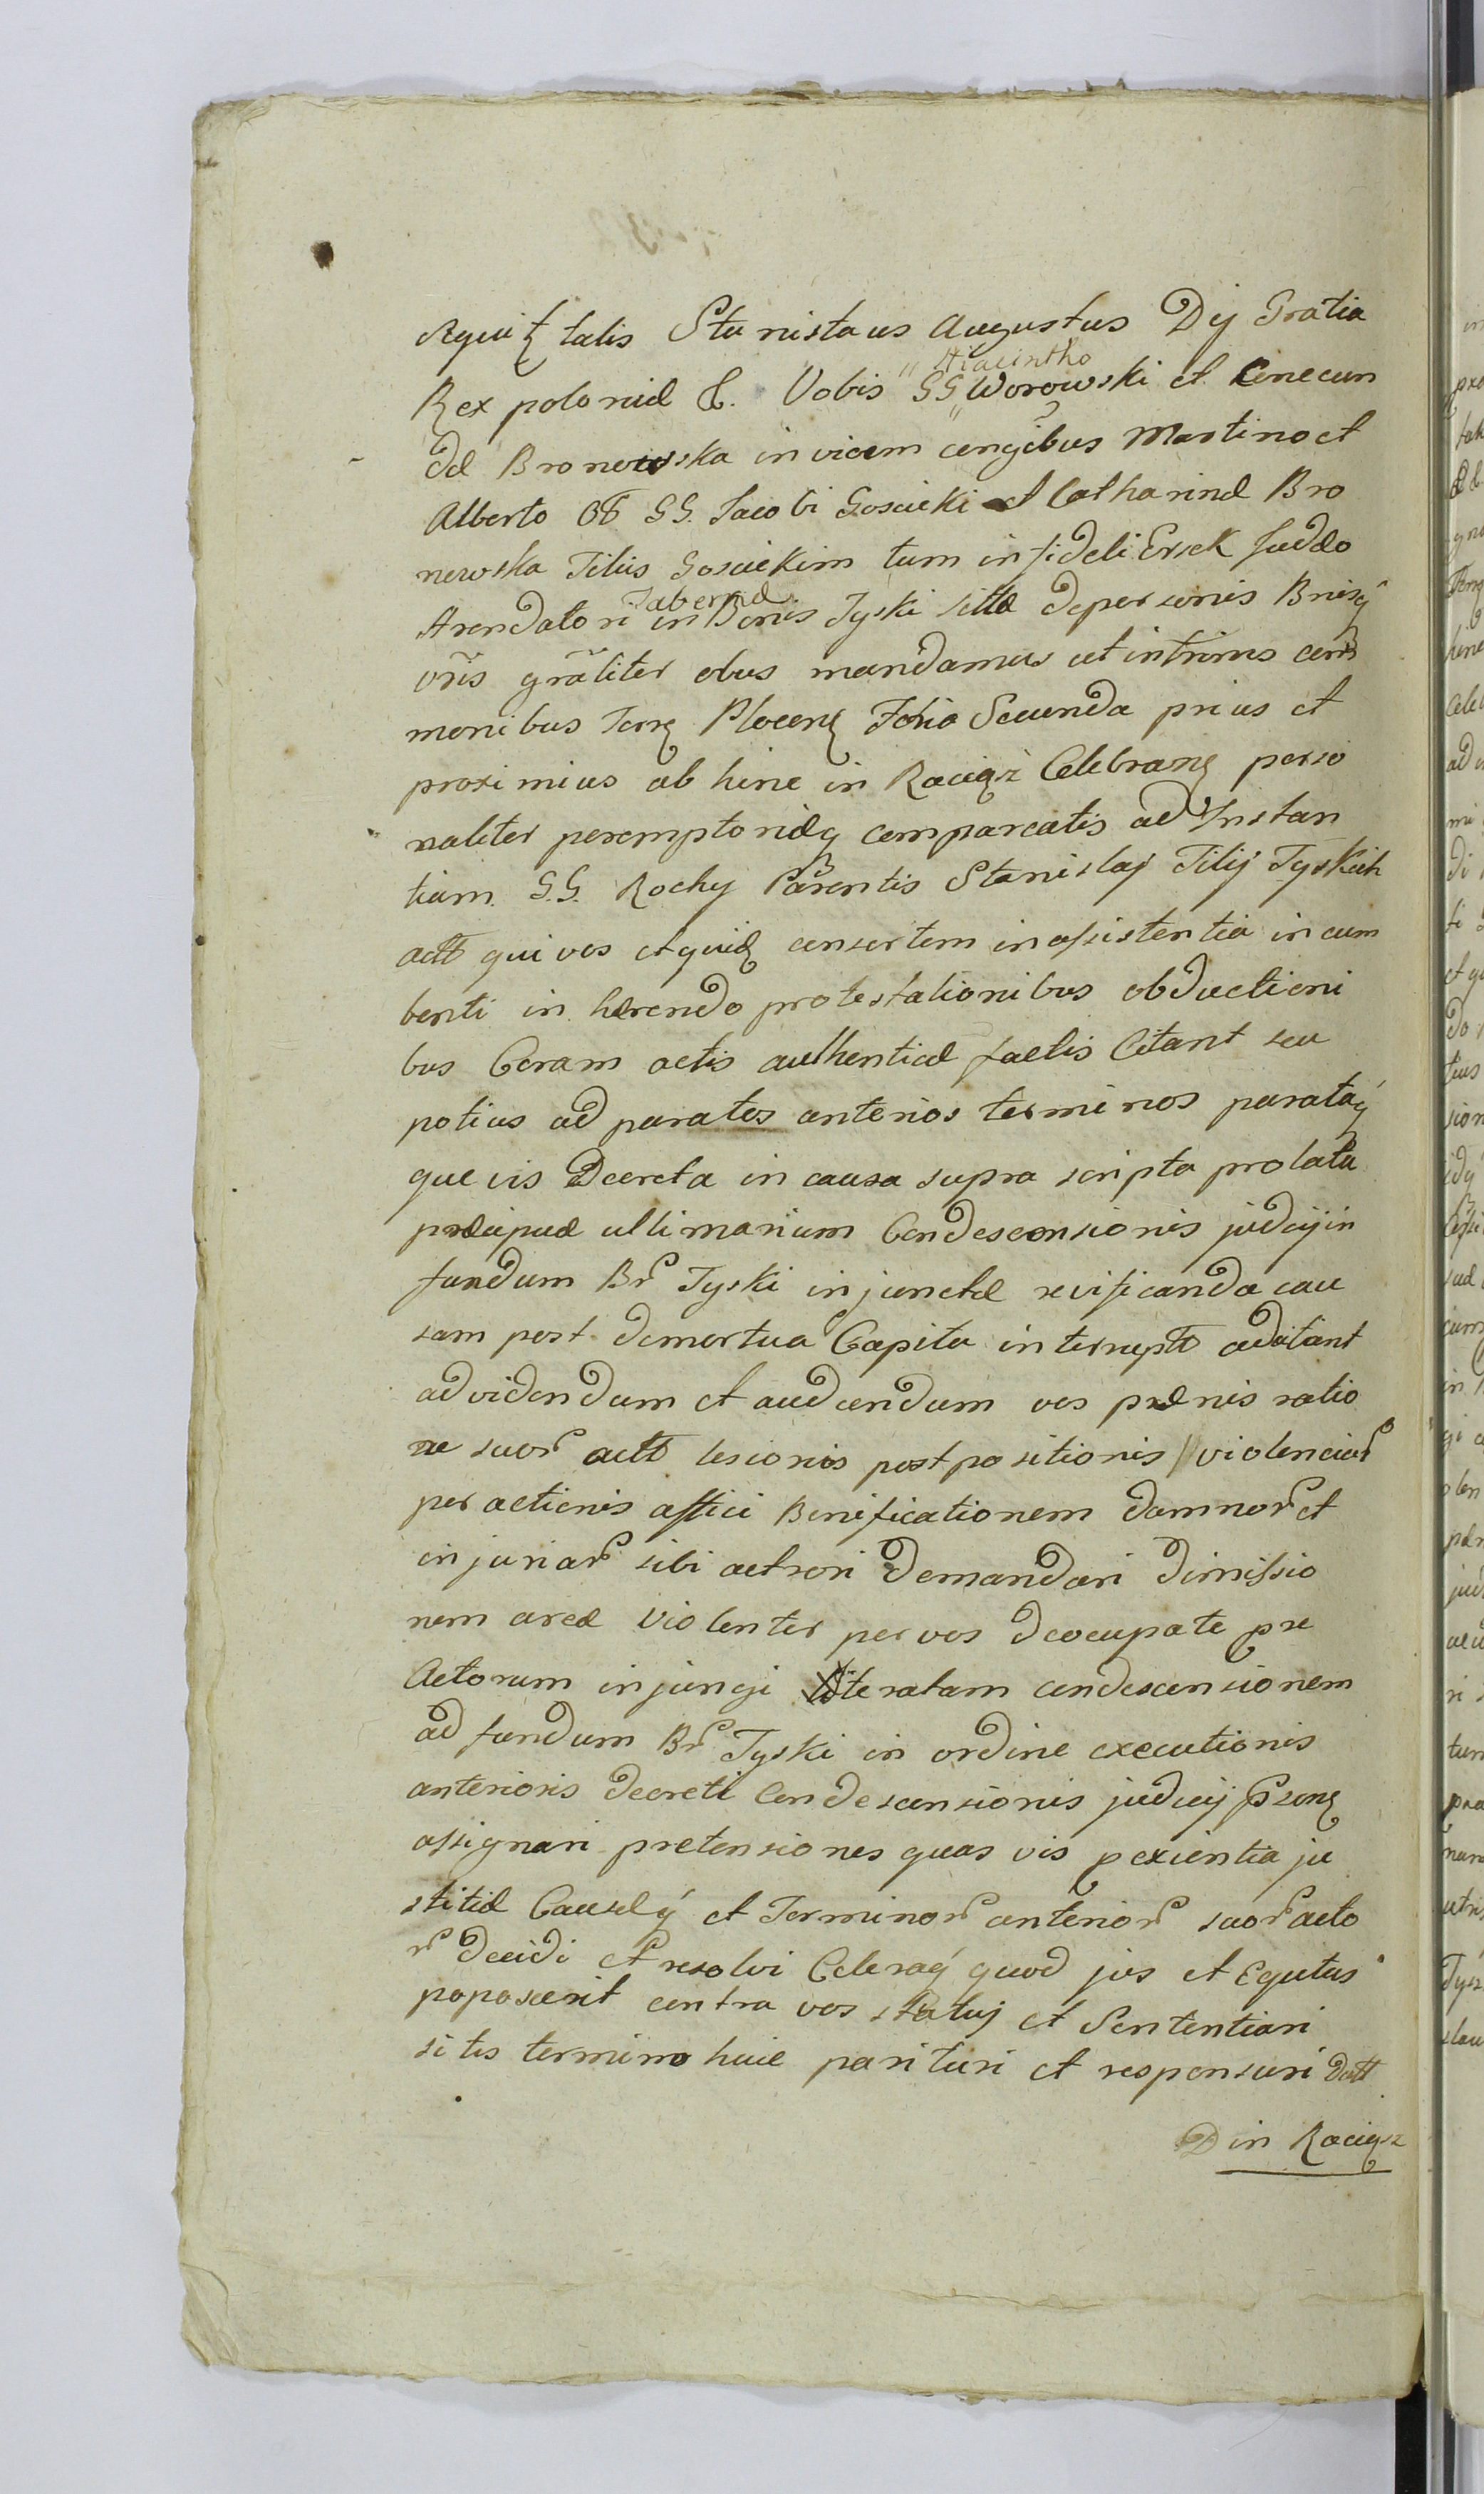 Sequit talis Stanislaus Augustus Dej Gratia
Hiacintho
Rex poloniæ &. Vobis GG Worowski et Cunecun
dæ Bronowska invicem congibus Martino et
Alberto Off GG. Jacobi Goscicki et Catharinæ Bro
newska Filiis Gosciekim tum infideli Ersek Judæo
Tabernæ
Arendatori in Bonis Tyski sittæ depersonis Bnisq
vris gräliter obus mandamus ut intrinis com
monibus Terrę Plocenę Foria Secunda prius et
proximius ab hinc in Raciąz Celebranę perso
naliter peremptorieq compareatis ad Instan
tiam. G.G. Rochy Parentis Stanislaj Filij Tyskich
actt qui vos et quidę consortem in assistentia incum
benti in hærendo protestationibus obductioni
bus Coram actis authenticæ factis Citant seu
potius ad paratos anterior terminos parataq
quevis Decreta in causa supra scripta prolata
præcipuæ ultimarium Condescensionis judicij in
fundum Br Tyski injunctæ revificanda cau
sam post demortua Capita interruptt adcitant
ad videndum et audiendum vos pænis ratio
ne suor actt lesionis postpositionis violenciar
peractionis affici Bonificationem damnor et
injuriar sibi actrori demandari dimissio
nem areæ violenter per vos deocupate pre
Actorum injungi iteratam condescensionem
ad fundum Br Tyski in ordine executionis
anterioris decreti Condescensionis judicij Psonę
assignari pretensiones quas vis pexientia ju
stitiæ Causæq et Terminor anterior suor acto
r decidi et resolvi Celeraq quod jus et Equitas
poposcerit contra vos statuj et Sententiari
sitis termino huic parituri et responsuri Datt
D in Raciąz